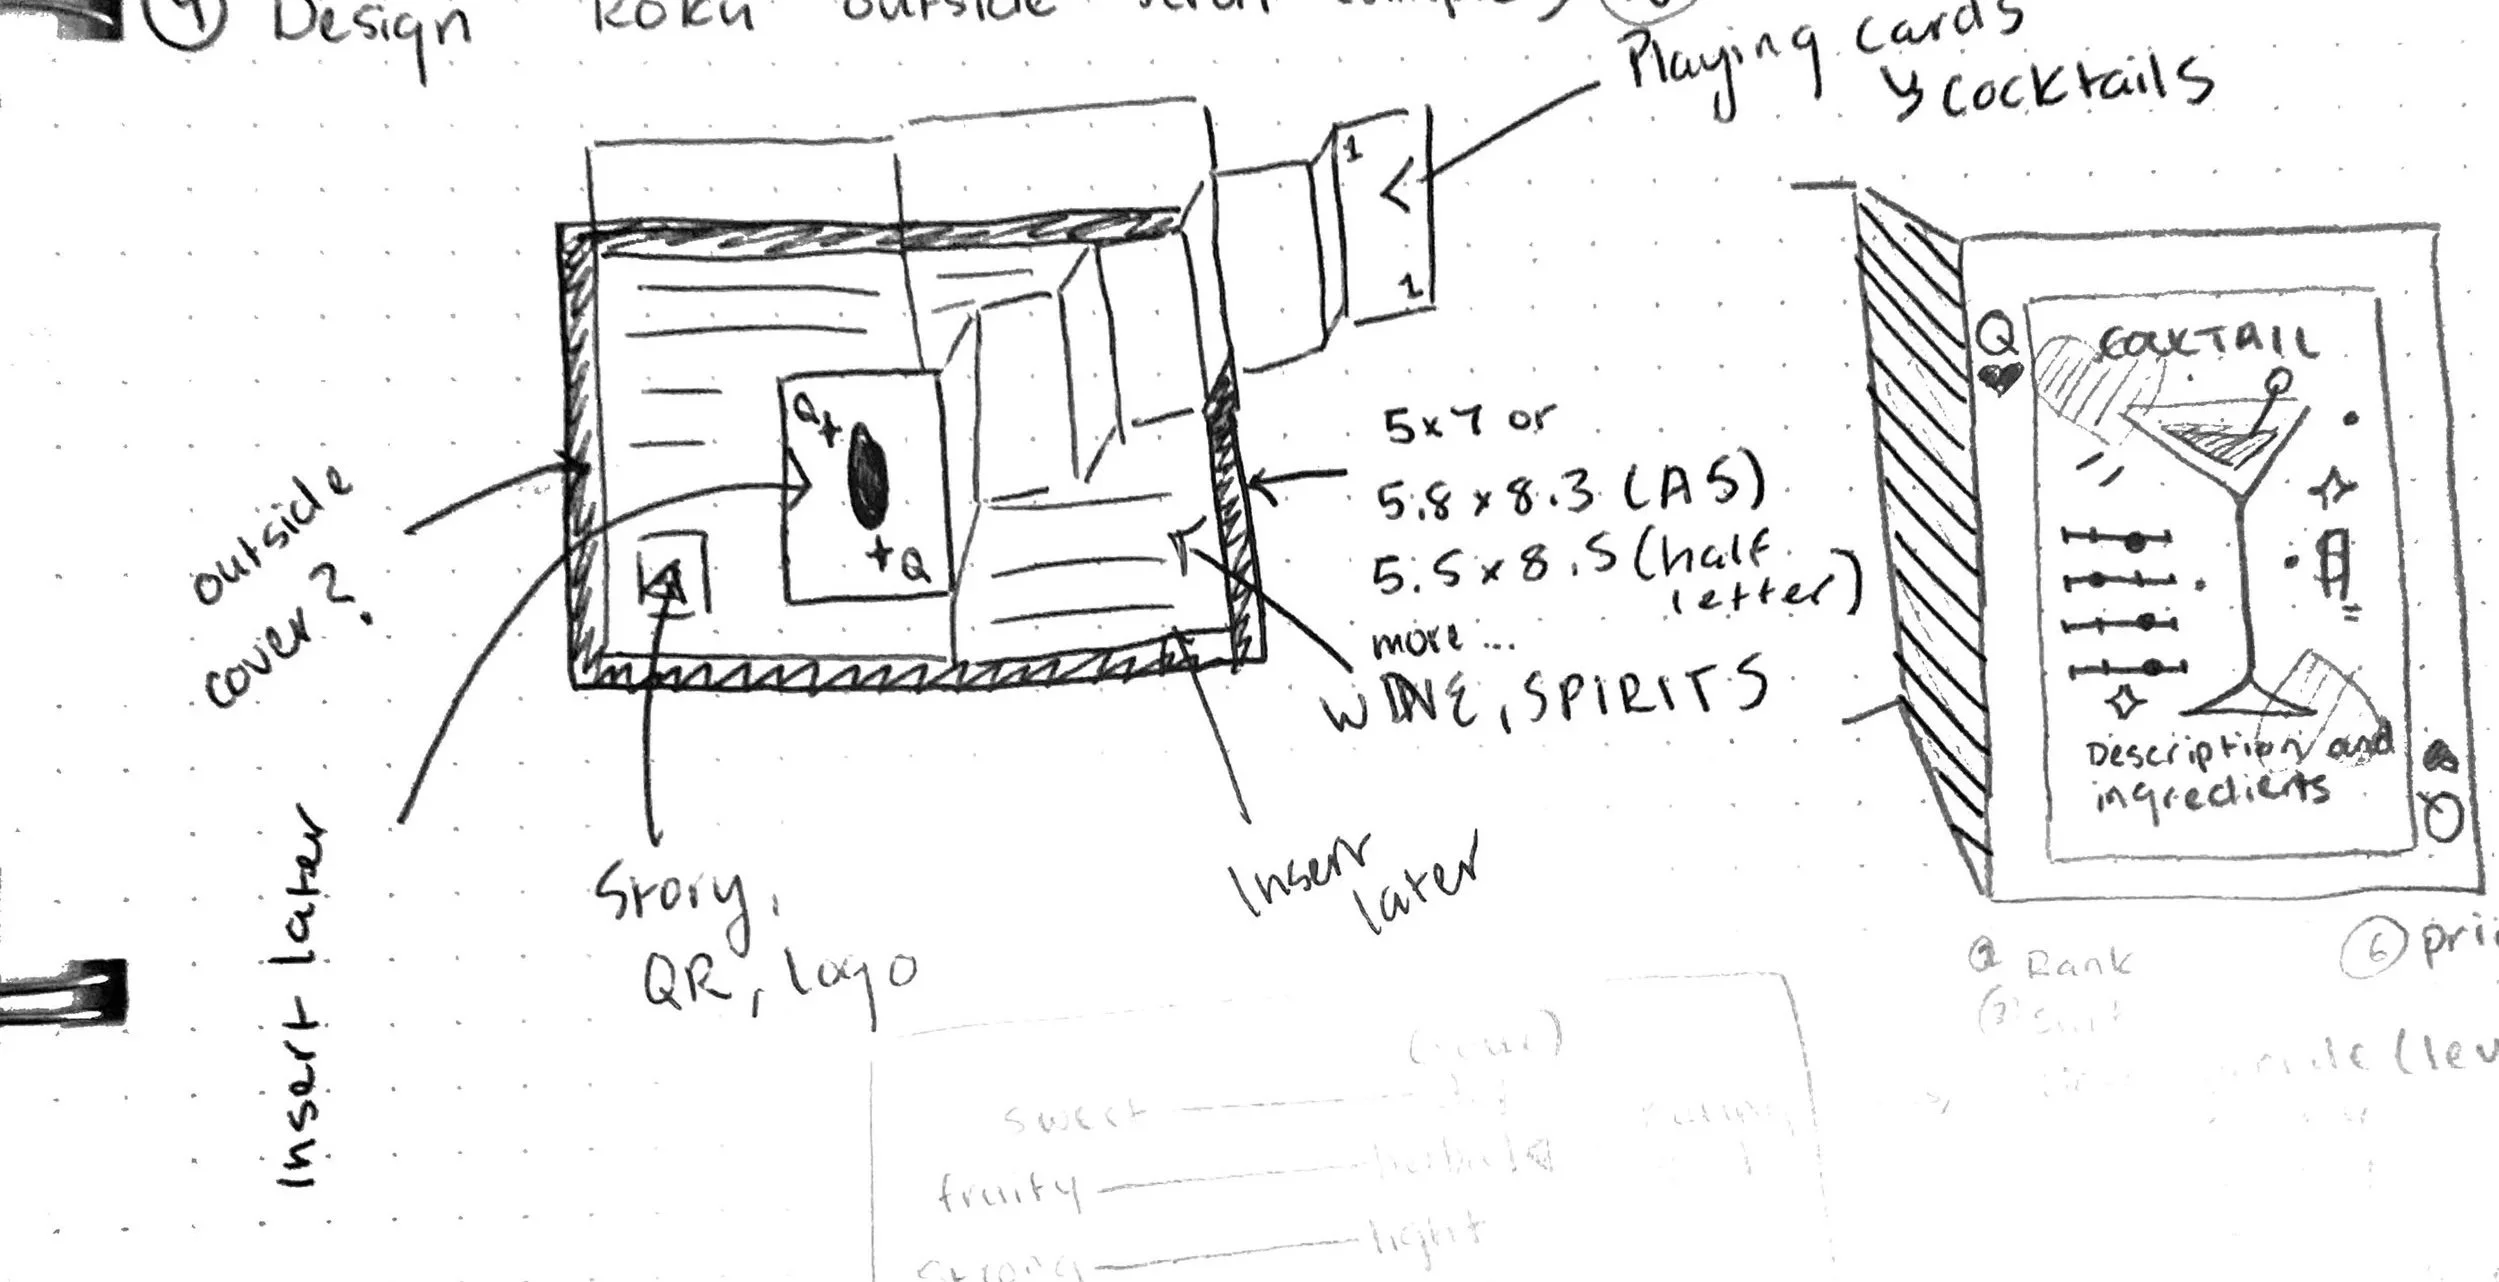 ④ Design Roku outside
Playing cards
↳ cocktails
1
1
Q
Q
outside
cover?
5x7 or
5.8 x 8.3 (A5)
5.5 x 8.5 (half
letter)
more...
WINE, SPIRITS
Insert later
Story,
QR, logo
Insert
later
Q
COCKTAIL
Description and
ingredients
Q
Rank
⑥
(sour)
sweet
fruity
strong
light